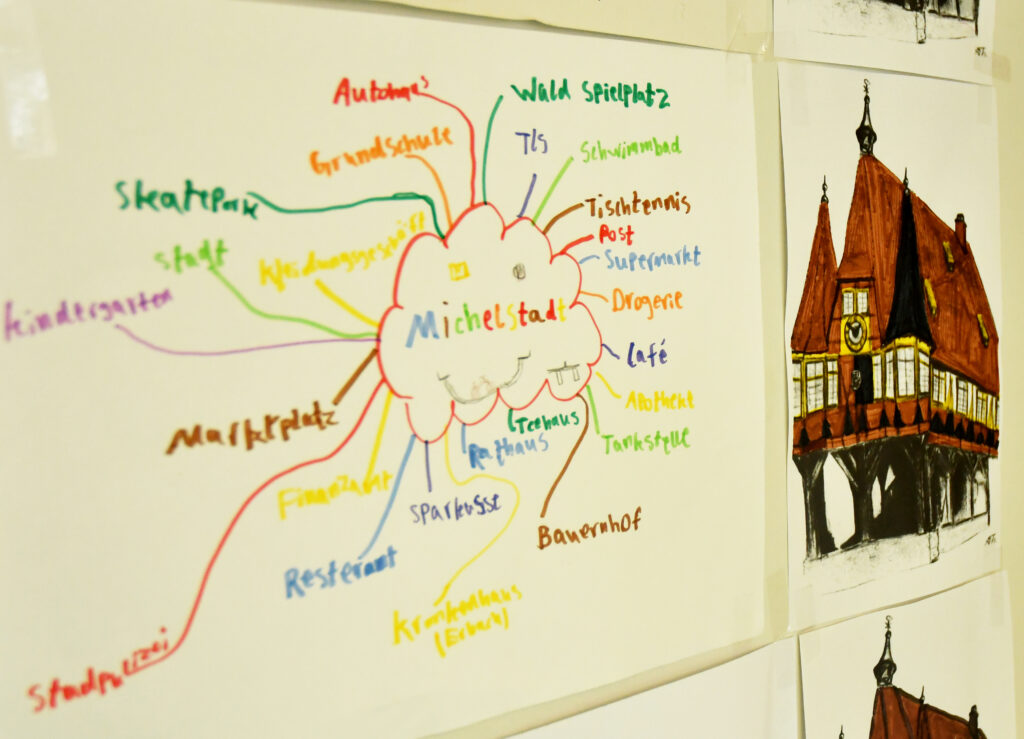 Autohaus
Wald Spielplatz
Grundschule
TLS
Schwimmbad
Skeatepark
Tischtennis
Stadt
Kleidungsgeschäft
Post
Supermarkt
Kindergarten
Drogerie
Michelstadt
Café
Marktplatz
Apothekt
Teehaus
Tankstelle
Rathaus
Finanzamt
Sparkasse
Bauernhof
Resterant
Krankenhaus
(Erbach)
Stadpolizei